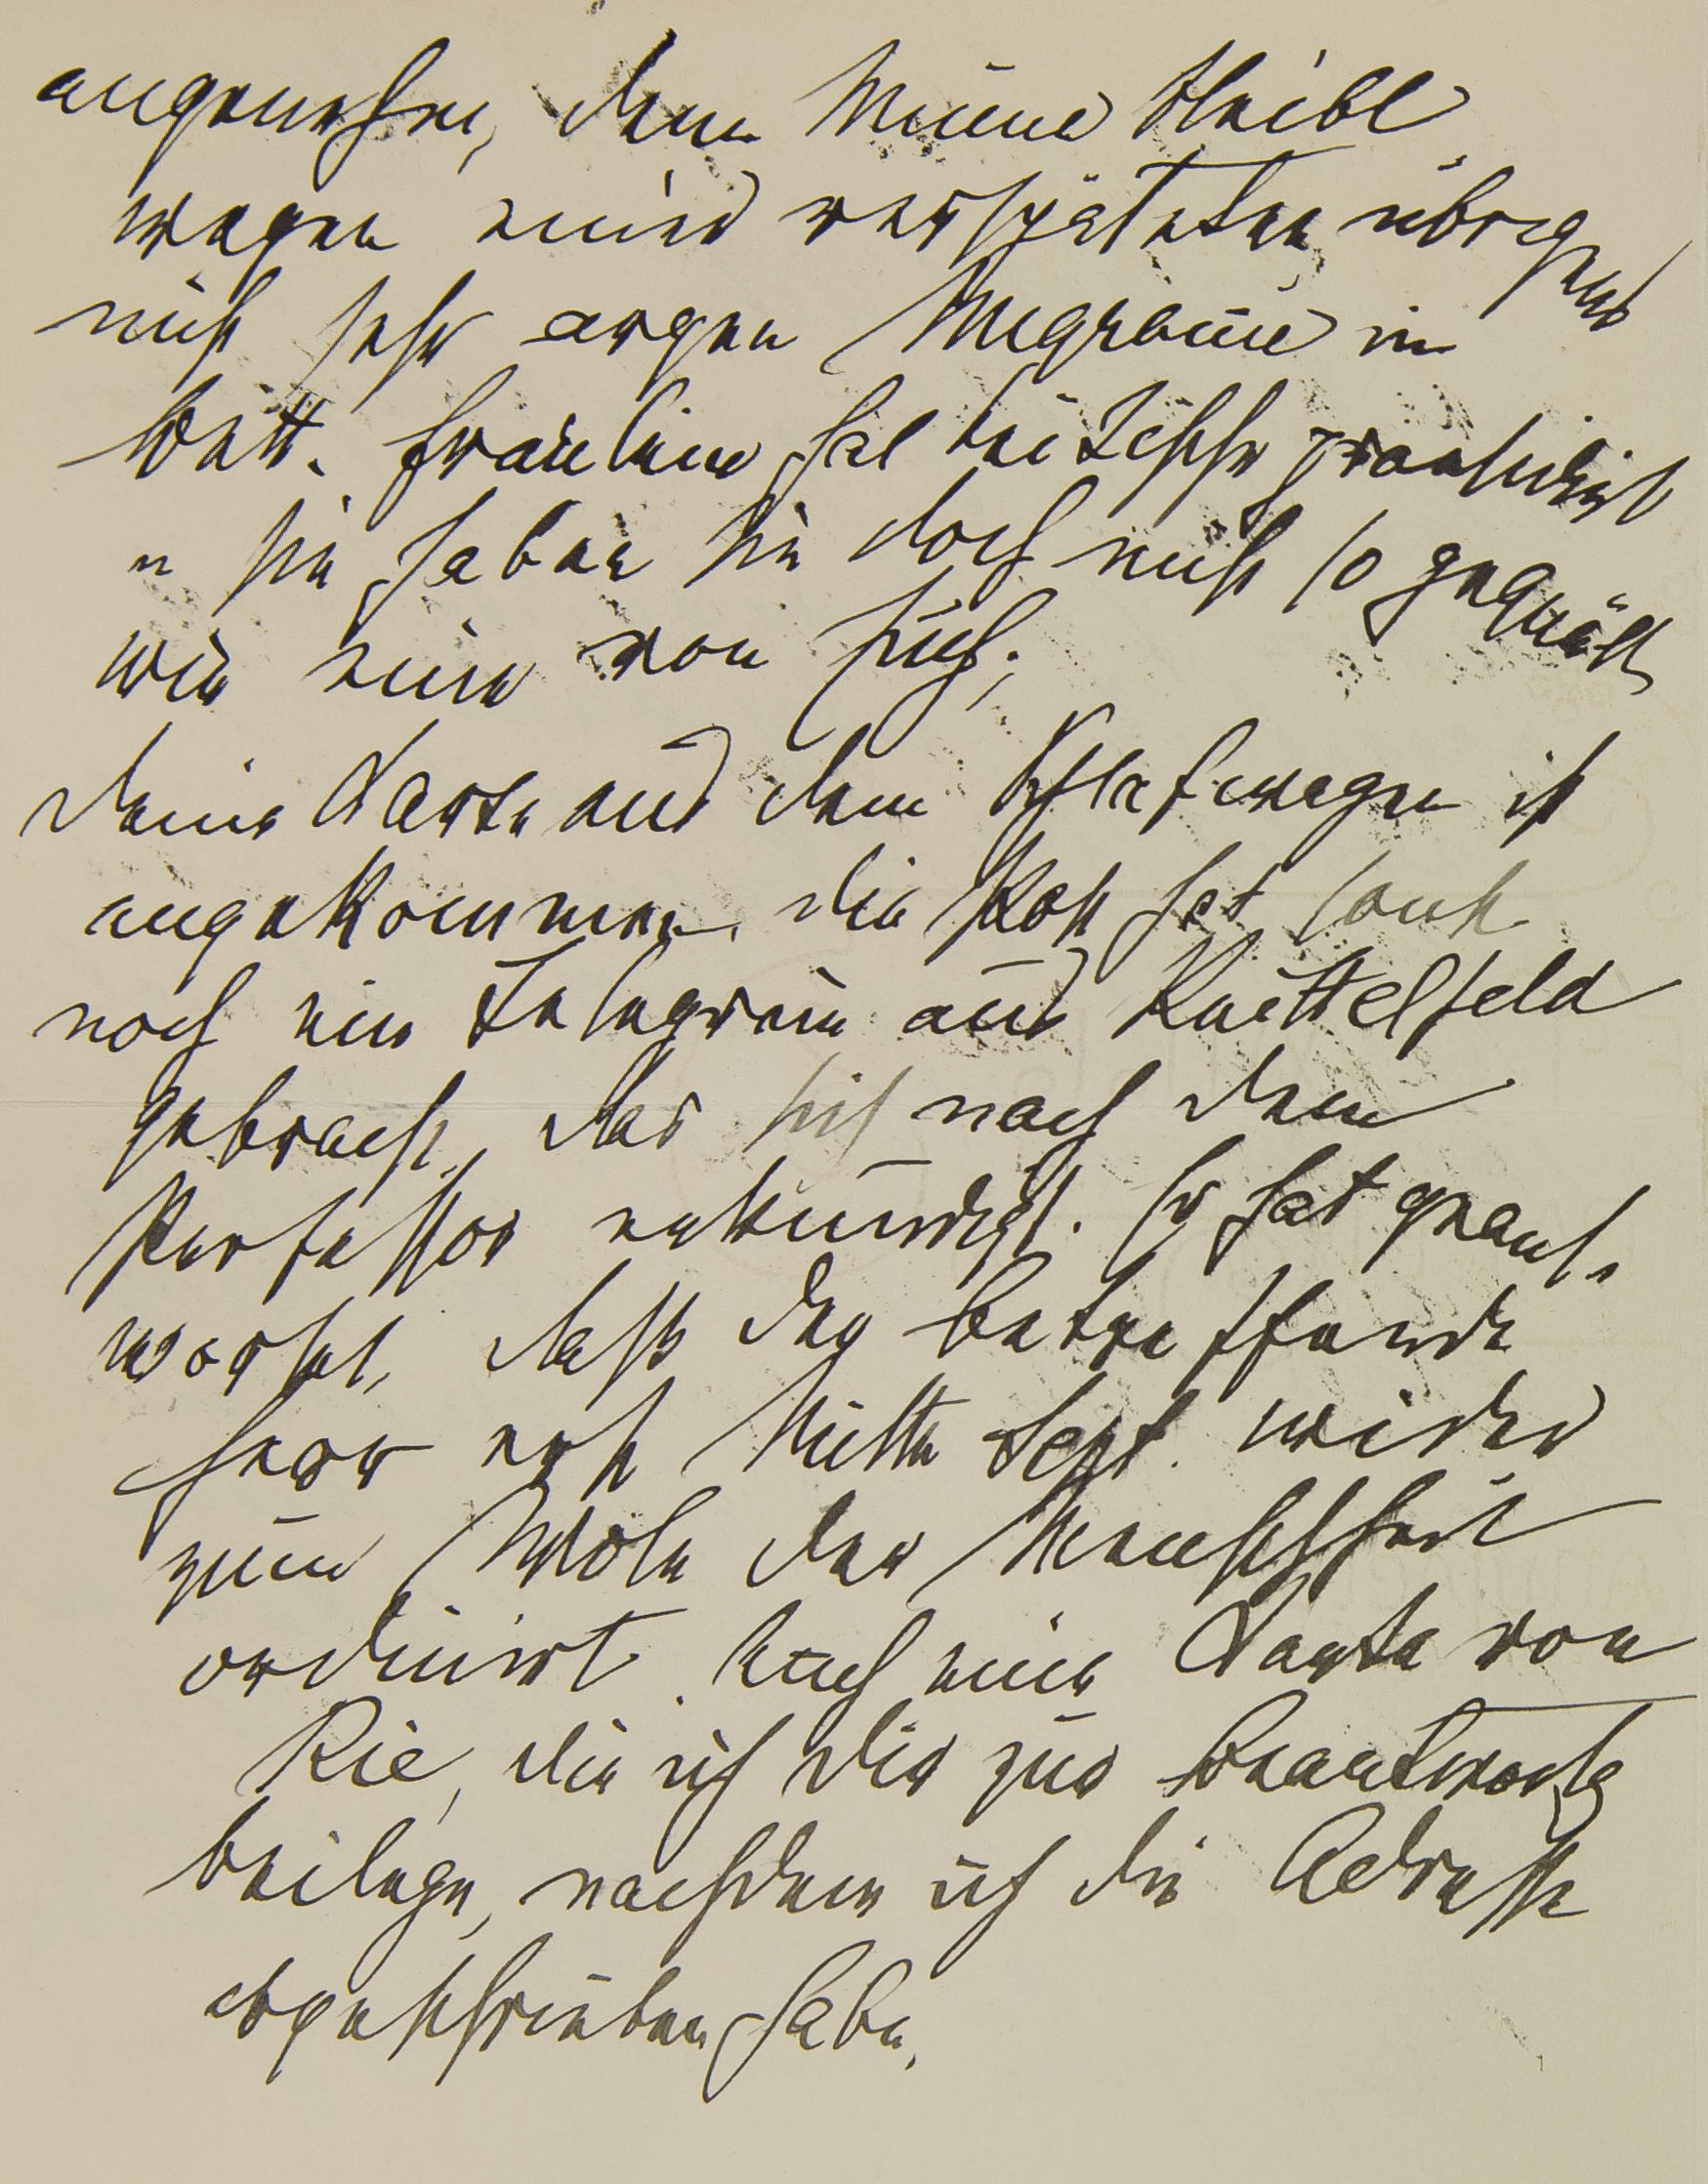 angenehm, denn Minna bleibt
wegen einer verspäteten übrigens
nicht sehr argen Migraine im
Bett. Fräulein hat bei Tische präsidirt
u sie haben sie doch nicht so gequält
wie eine von sich;
Deine Karte aus dem Schlafwagen ist
angekommen, die Post hat sonst
noch ein Telegram aus Knittelfeld
gebracht, das sich nach dem
Professor erkundigt. Es hat geant-
wortet, daß der betreffende
Herr erst Mitte Sept. wieder
zum Wole der Menschheit
ordinirt. Auch eine Karte von
Rie, die ich dir zur Beantwortg
beilege, nachdem ich die Adresse
abgeschrieben habe.